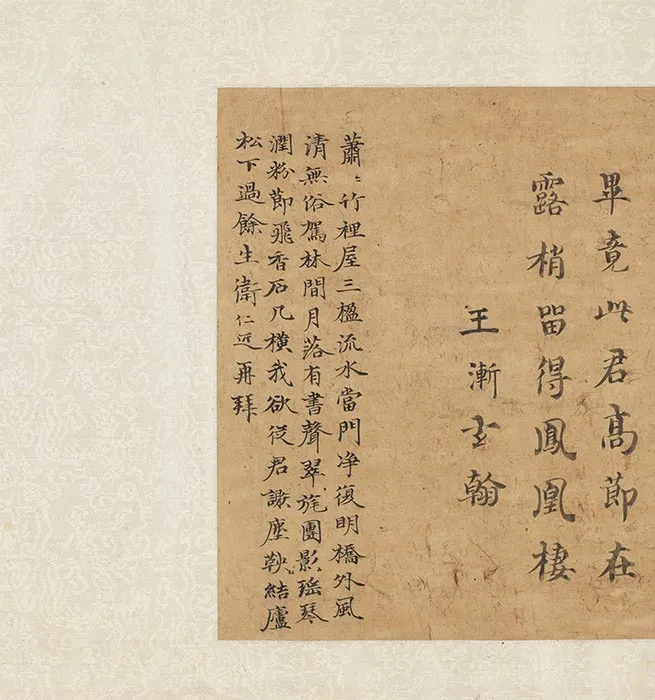 畢竟此君高節在
露梢留得鳳凰棲
王漸玄翰
蕭〻竹裡屋三楹流水當門净復明橋外風
清無俗駕林間月落有書聲翠旄團影瑶琴
潤粉節飛香石几橫我欲從君謝塵鞅結廬
松下過餘生衛仁近再拜